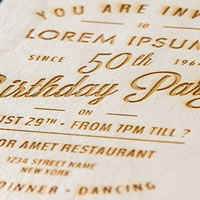 YOU ARE INV
TO
LOREM IPSUM
SINCE 50th 1964
Birthday Par
ON
UST 29TH - FROM 7PM TILL ?
OR AMET RESTAURANT
1234 STREET NAME
NEW YORK
DINNER - DANCING